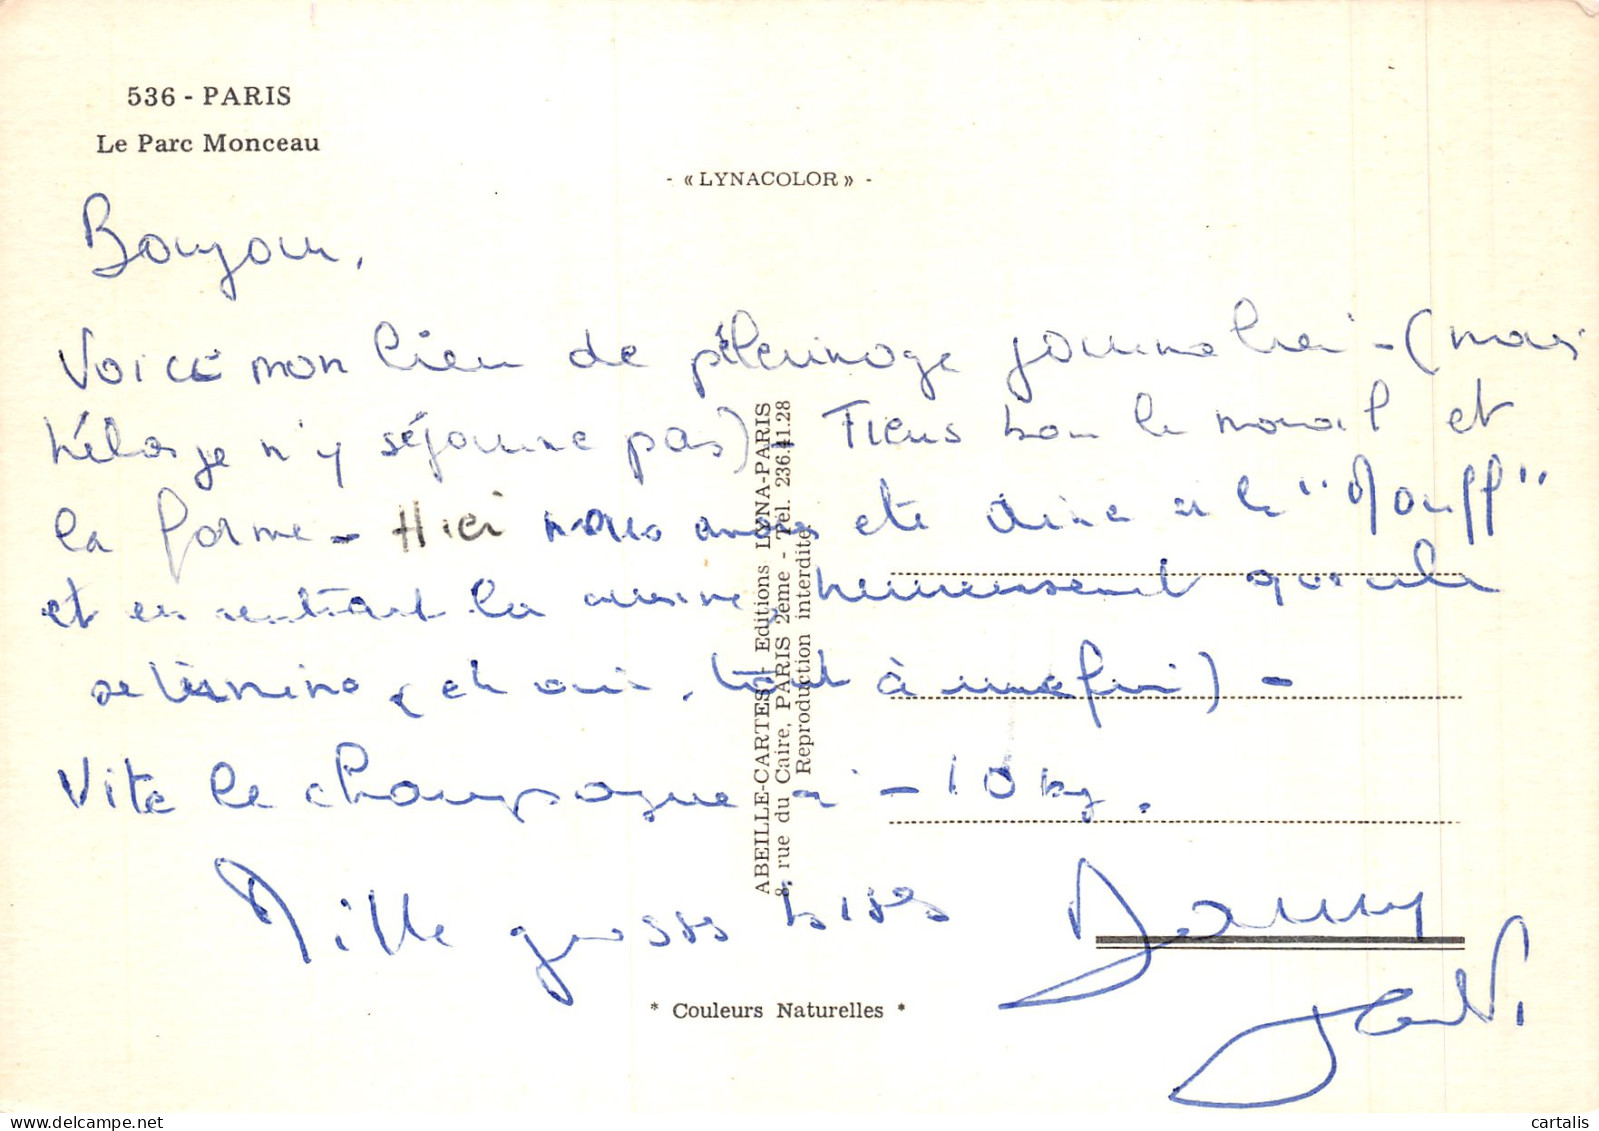 536 - PARIS
Le Parc Monceau
- « LYNACOLOR » -
Bonjour,
Voici mon lieu de pélerinage journalier - (mais
hélas je n'y séjourne pas). Tiens bon le moral et
la forme - Hier nous avons été dîner à la "Mouff"
et en rentrant la heureusement que cela
se termine, à une fin) -
Vite le champagne à - 10 kg.
Mille grosses bises Danny
ABEILLE-CARTES - Editions LYNA-PARIS
8, rue du Caire, PARIS 2ème - Tél. 236.41.28
Reproduction interdite
* Couleurs Naturelles *
cartalis